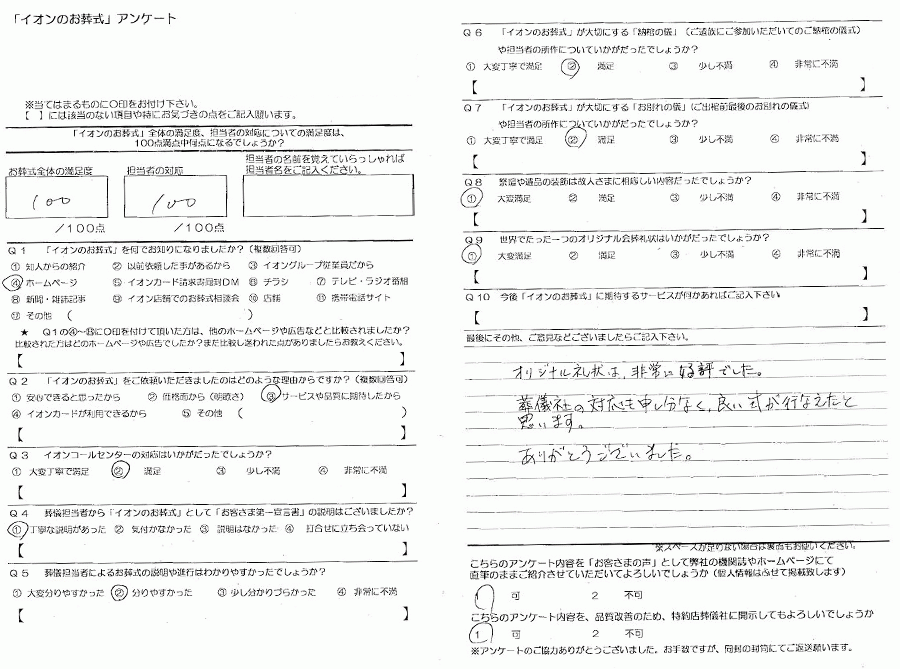 「イオンのお葬式」アンケート
※当てはまるものに○印をお付け下さい。
【 】には該当のない項目や特にお気づきの点をご記入願います。
「イオンのお葬式」全体の満足度、担当者の対応についての満足度は、
100点満点中何点になるでしょうか?
お葬式全体の満足度
担当者の対応
担当者の名前を覚えていらっしゃれば
担当者名をご記入ください。
100
100
/100点
/100点
Q1 「イオンのお葬式」を何でお知りになりましたか?(複数回答可)
① 知人からの紹介 ② 以前依頼した事があるから ③ イオングループ従業員だから
④ ホームページ ⑤ イオンカード請求書同封DM ⑥ チラシ ⑦ テレビ・ラジオ番組
⑧ 新聞・雑誌記事 ⑨ イオン店舗でのお葬式相談会 ⑩ 店舗 ⑪ 携帯電話サイト
その他 ( )
★ Q1の④~⑬に○印を付けて頂いた方は、他のホームページや広告などと比較されましたか?
比較された方はどのホームページや広告でしたか?また比較し迷われた点がありましたらお教えください。
【 】
Q2 「イオンのお葬式」をご依頼いただきましたのはどのような理由からですか?(複数回答可)
① 安心できると思ったから ② 価格面から(明瞭さ) ③ サービスや品質に期待したから
④ イオンカードが利用できるから ⑤ その他 ( )
【 】
Q3 イオンコールセンターの対応はいかがだったでしょうか?
① 大変丁寧で満足 ② 満足 ③ 少し不満 ④ 非常に不満
【 】
Q4 葬儀担当者から「イオンのお葬式」として「お客さま第一宣言書」の説明はございましたか?
① 丁寧な説明があった ② 気付かなかった ③ 説明はなかった ④ 打合せに立ち会っていない
【 】
Q5 葬儀担当者によるお葬式の説明や進行はわかりやすかったでしょうか?
① 大変分りやすかった ② 分りやすかった ③ 少し分かりづらかった ④ 非常に不満
【 】
Q6 「イオンのお葬式」が大切にする「納棺の儀」(ご遺族にご参加いただいてのご納棺の儀式)
や担当者の所作についていかがだったでしょうか?
① 大変丁寧で満足 ② 満足 ③ 少し不満 ④ 非常に不満
【 】
Q7 「イオンのお葬式」が大切にする「お別れの儀」(ご出棺前最後のお別れの儀式)
や担当者の所作についていかがだったでしょうか?
① 大変丁寧で満足 ② 満足 ③ 少し不満 ④ 非常に不満
【 】
Q8 祭壇や遺品の装飾は故人さまに相応しい内容だったでしょうか?
① 大変満足 ② 満足 ③ 少し不満 ④ 非常に不満
【 】
Q9 世界でたった一つのオリジナル会葬礼状はいかがだったでしょうか?
① 大変満足 ② 満足 ③ 少し不満 ④ 非常に不満
【 】
Q10 今後「イオンのお葬式」に期待するサービスが何かあればご記入下さい
【 】
最後にその他、ご意見などございましたらご記入下さい。
オリジナル礼状は、非常に好評でした。
葬儀社の対応も申し分なく、良い式が行なえたと
思います。
ありがとうございました。
※スペースが足りない場合は裏面もお使いください。
こちらのアンケート内容を「お客さまの声」として弊社の機関誌やホームページにて
直筆のままご紹介させていただいてよろしいでしょうか(個人情報はふせて掲載致します)
1 可 2 不可
こちらのアンケート内容を、品質改善のため、特約店葬儀社に開示してもよろしいでしょうか
1 可 2 不可
※アンケートのご協力ありがとうございました。お手数ですが、同封の封筒にてご返送願います。